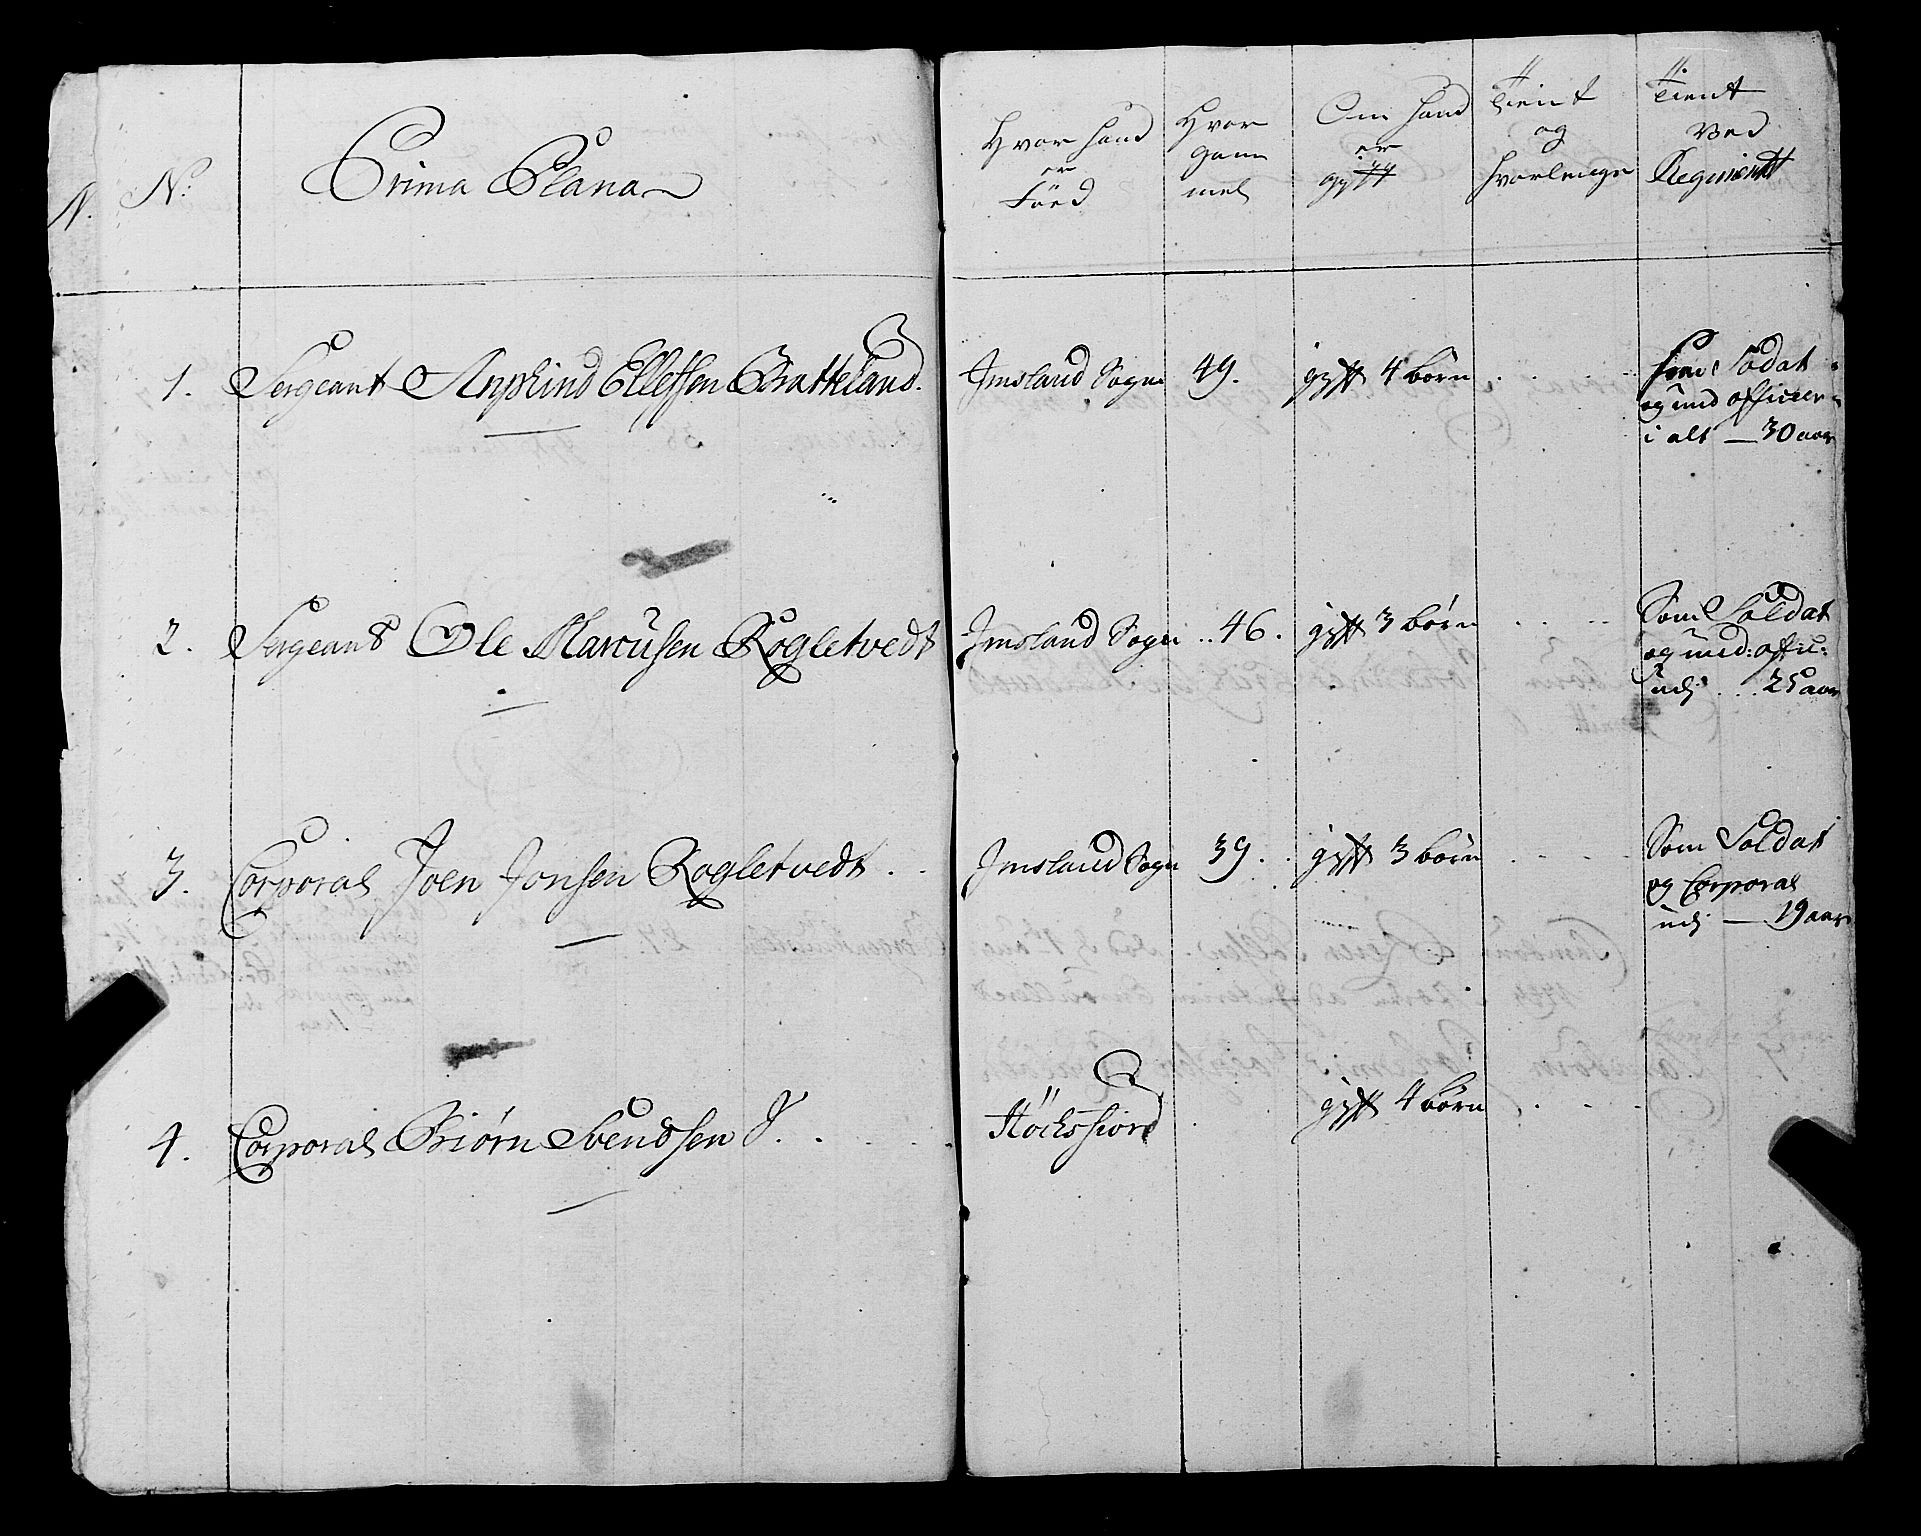 N. No: Prima Plana
Hvor hand
er
Föed
Hvor
gam
mel
Om hand
er
gyfft
Tient
og
hvorlenge
Tient
Ved
Regimentt
1. Sergeant Ellefsen Bratteland. Imsland Sogn 49. gyft 4 börn
Som Soldat
og und officeer
i alt — 30 aar
2. Sergeant Ole Marcusen Rogletvedt Imsland Sogn .. 46. gift 3 börn
Som Soldat
og und: offic:
udj . . . 25 aar
3. Corporal Joen Jonsen Rogletvedt . . Imsland Sogn 39. gift 3 börn
Som Soldat
og Corporal
udj — 19 aar
4. Corporal Biørn Svendsen gyft 4 börn